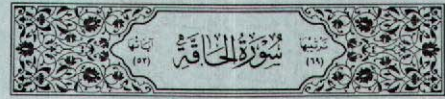 ترتيبها
(٦٩)
سُورَةُ الحَاقَّةِ
آياتها
(٥٢)